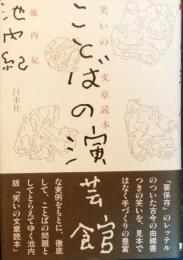 笑いの文章読本
ことばの演
芸館
池内紀
池内紀
白水社
「要保存」のレッテル
のついた古今の由緒書
つきの笑いを、見本で
はなく手づくりの豊富
な実例をもとに、徹底
して、ことばの問題と
してとらえてゆく池内
版「笑いの文章読本」